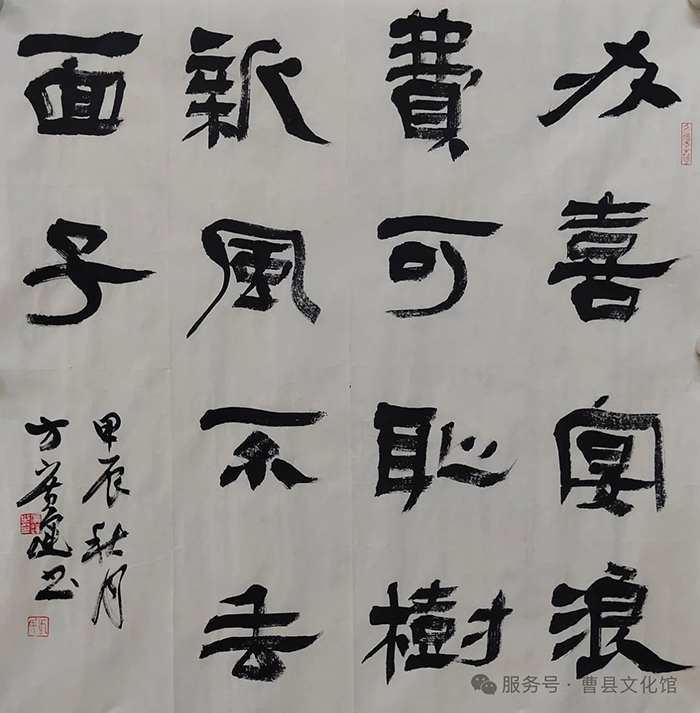 办喜宴浪
費可恥樹
新風不丢
面子
甲辰秋月
方 书
服务号 · 曹县文化馆